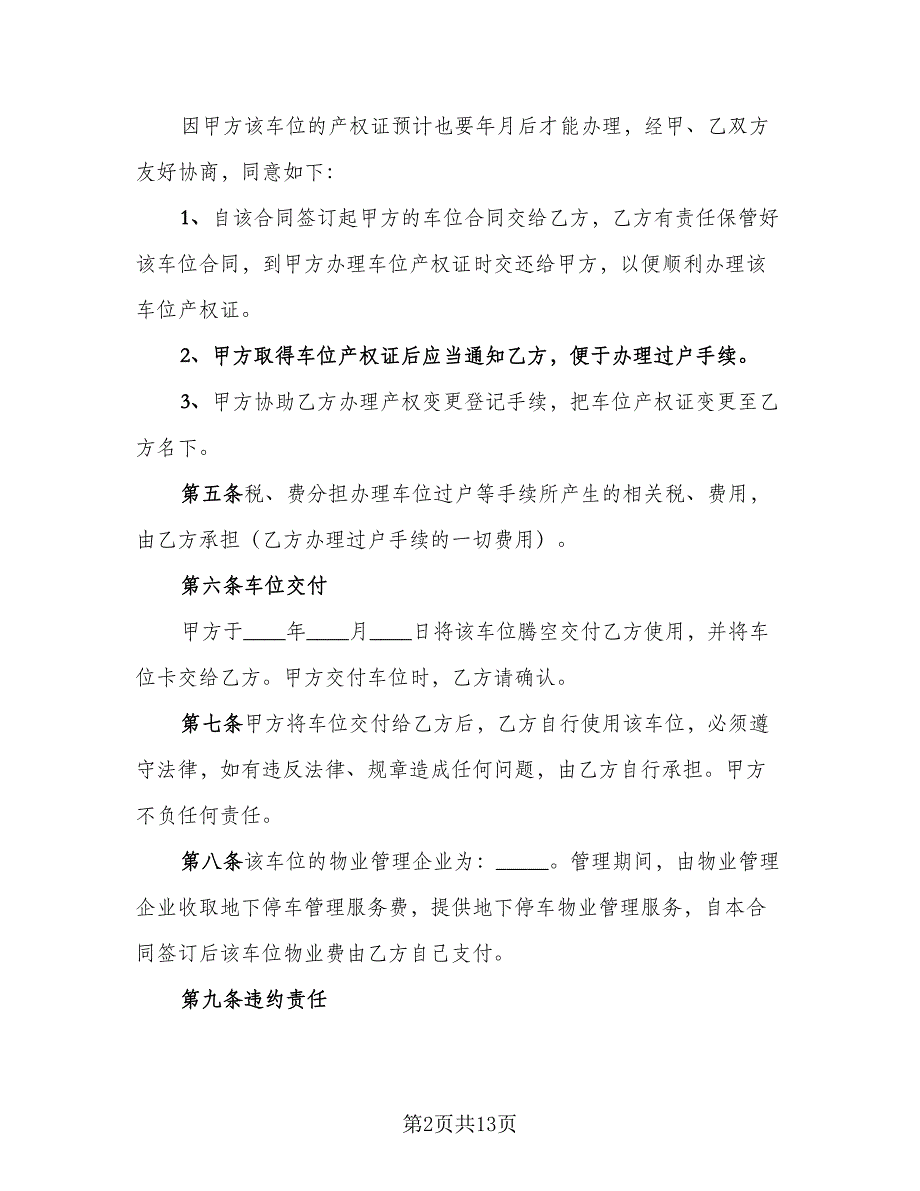 因甲方该车位的产权证预计也要年月后才能办理，经甲、乙双方
友好协商，同意如下：
1、自该合同签订起甲方的车位合同交给乙方，乙方有责任保管好
该车位合同，到甲方办理车位产权证时交还给甲方，以便顺利办理该
车位产权证。
2、甲方取得车位产权证后应当通知乙方，便于办理过户手续。
3、甲方协助乙方办理产权变更登记手续，把车位产权证变更至乙
方名下。
第五条税、费分担办理车位过户等手续所产生的相关税、费用，
由乙方承担（乙方办理过户手续的一切费用）。
第六条车位交付
甲方于____年____月____日将该车位腾空交付乙方使用，并将车
位卡交给乙方。甲方交付车位时，乙方请确认。
第七条甲方将车位交付给乙方后，乙方自行使用该车位，必须遵
守法律，如有违反法律、规章造成任何问题，由乙方自行承担。甲方
不负任何责任。
第八条该车位的物业管理企业为：_____。管理期间，由物业管理
企业收取地下停车管理服务费，提供地下停车物业管理服务，自本合
同签订后该车位物业费由乙方自己支付。
第九条违约责任
第2页共13页